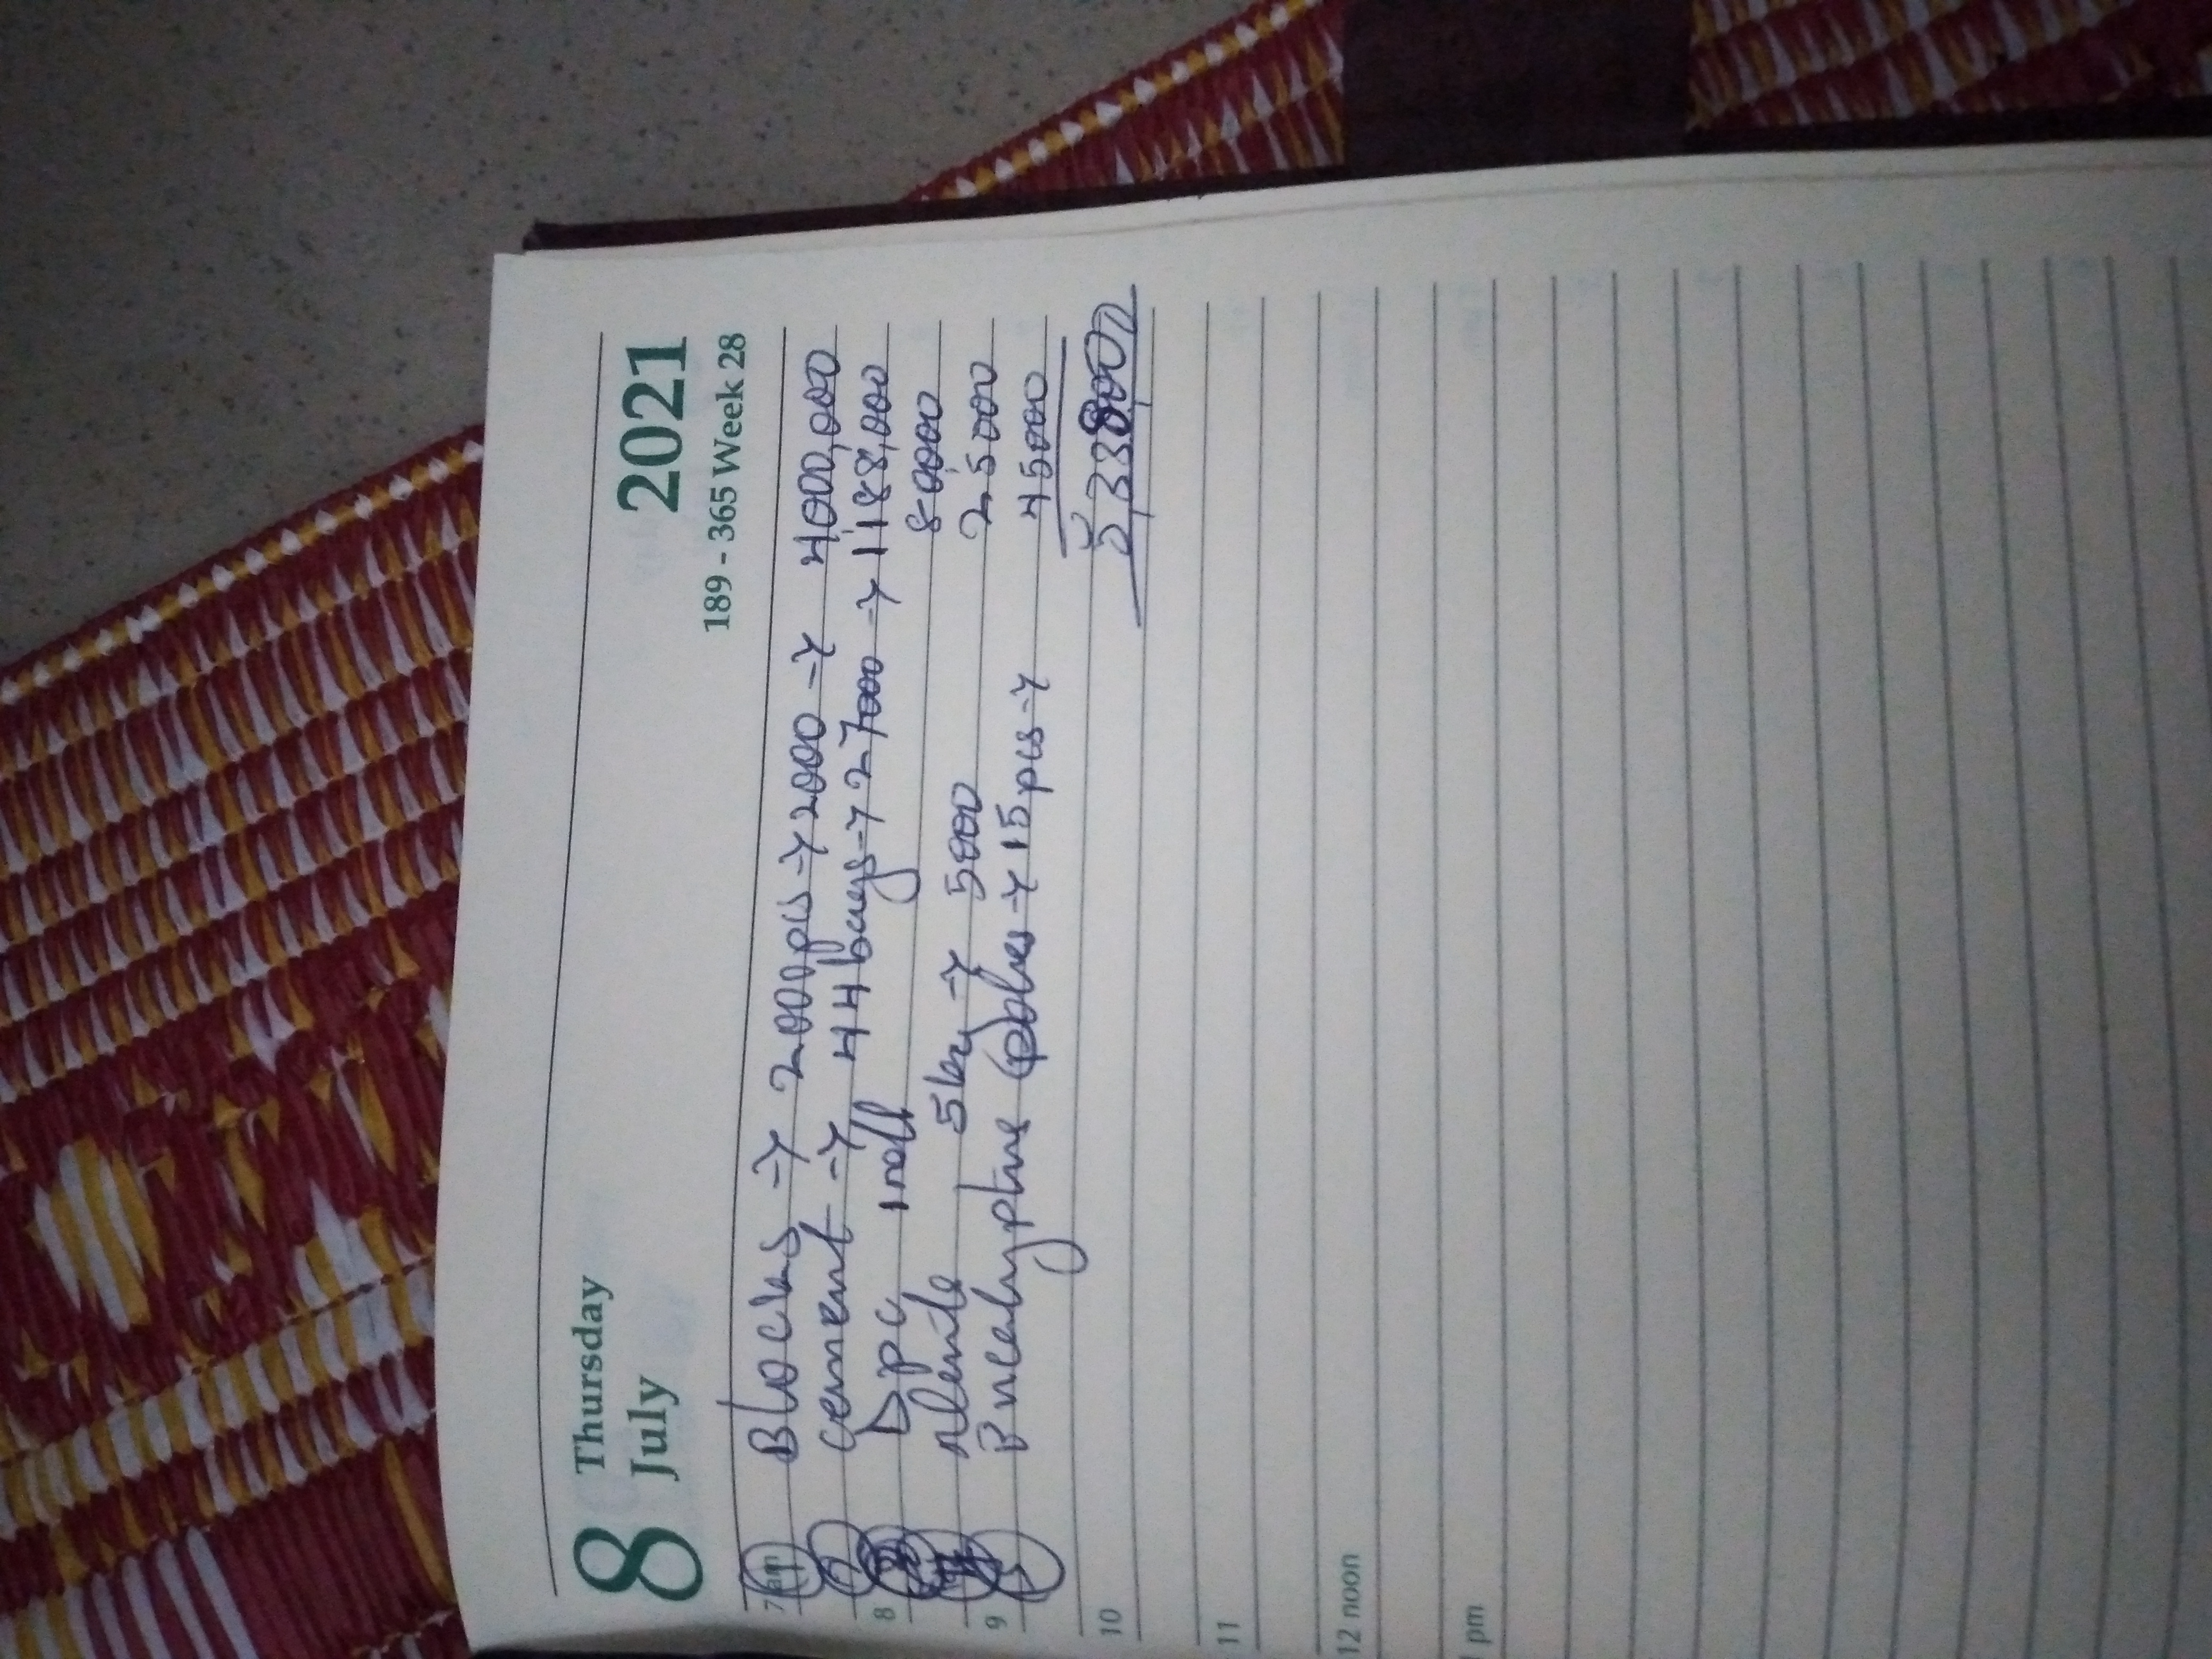 8 Thursday
July
2021
189 - 365 Week 28
7 am ① Blocks → 2000pcs → 2000 → 4000,000
② cement → 44bags → 27000 → 1188,000
8 ③ Dpc 1 roll 80000
④ 5kg → 5000 25000
9 ⑤ Eucalyptus (poles → 15pcs → 45000
5,338,000
10
11
12 noon
1 pm